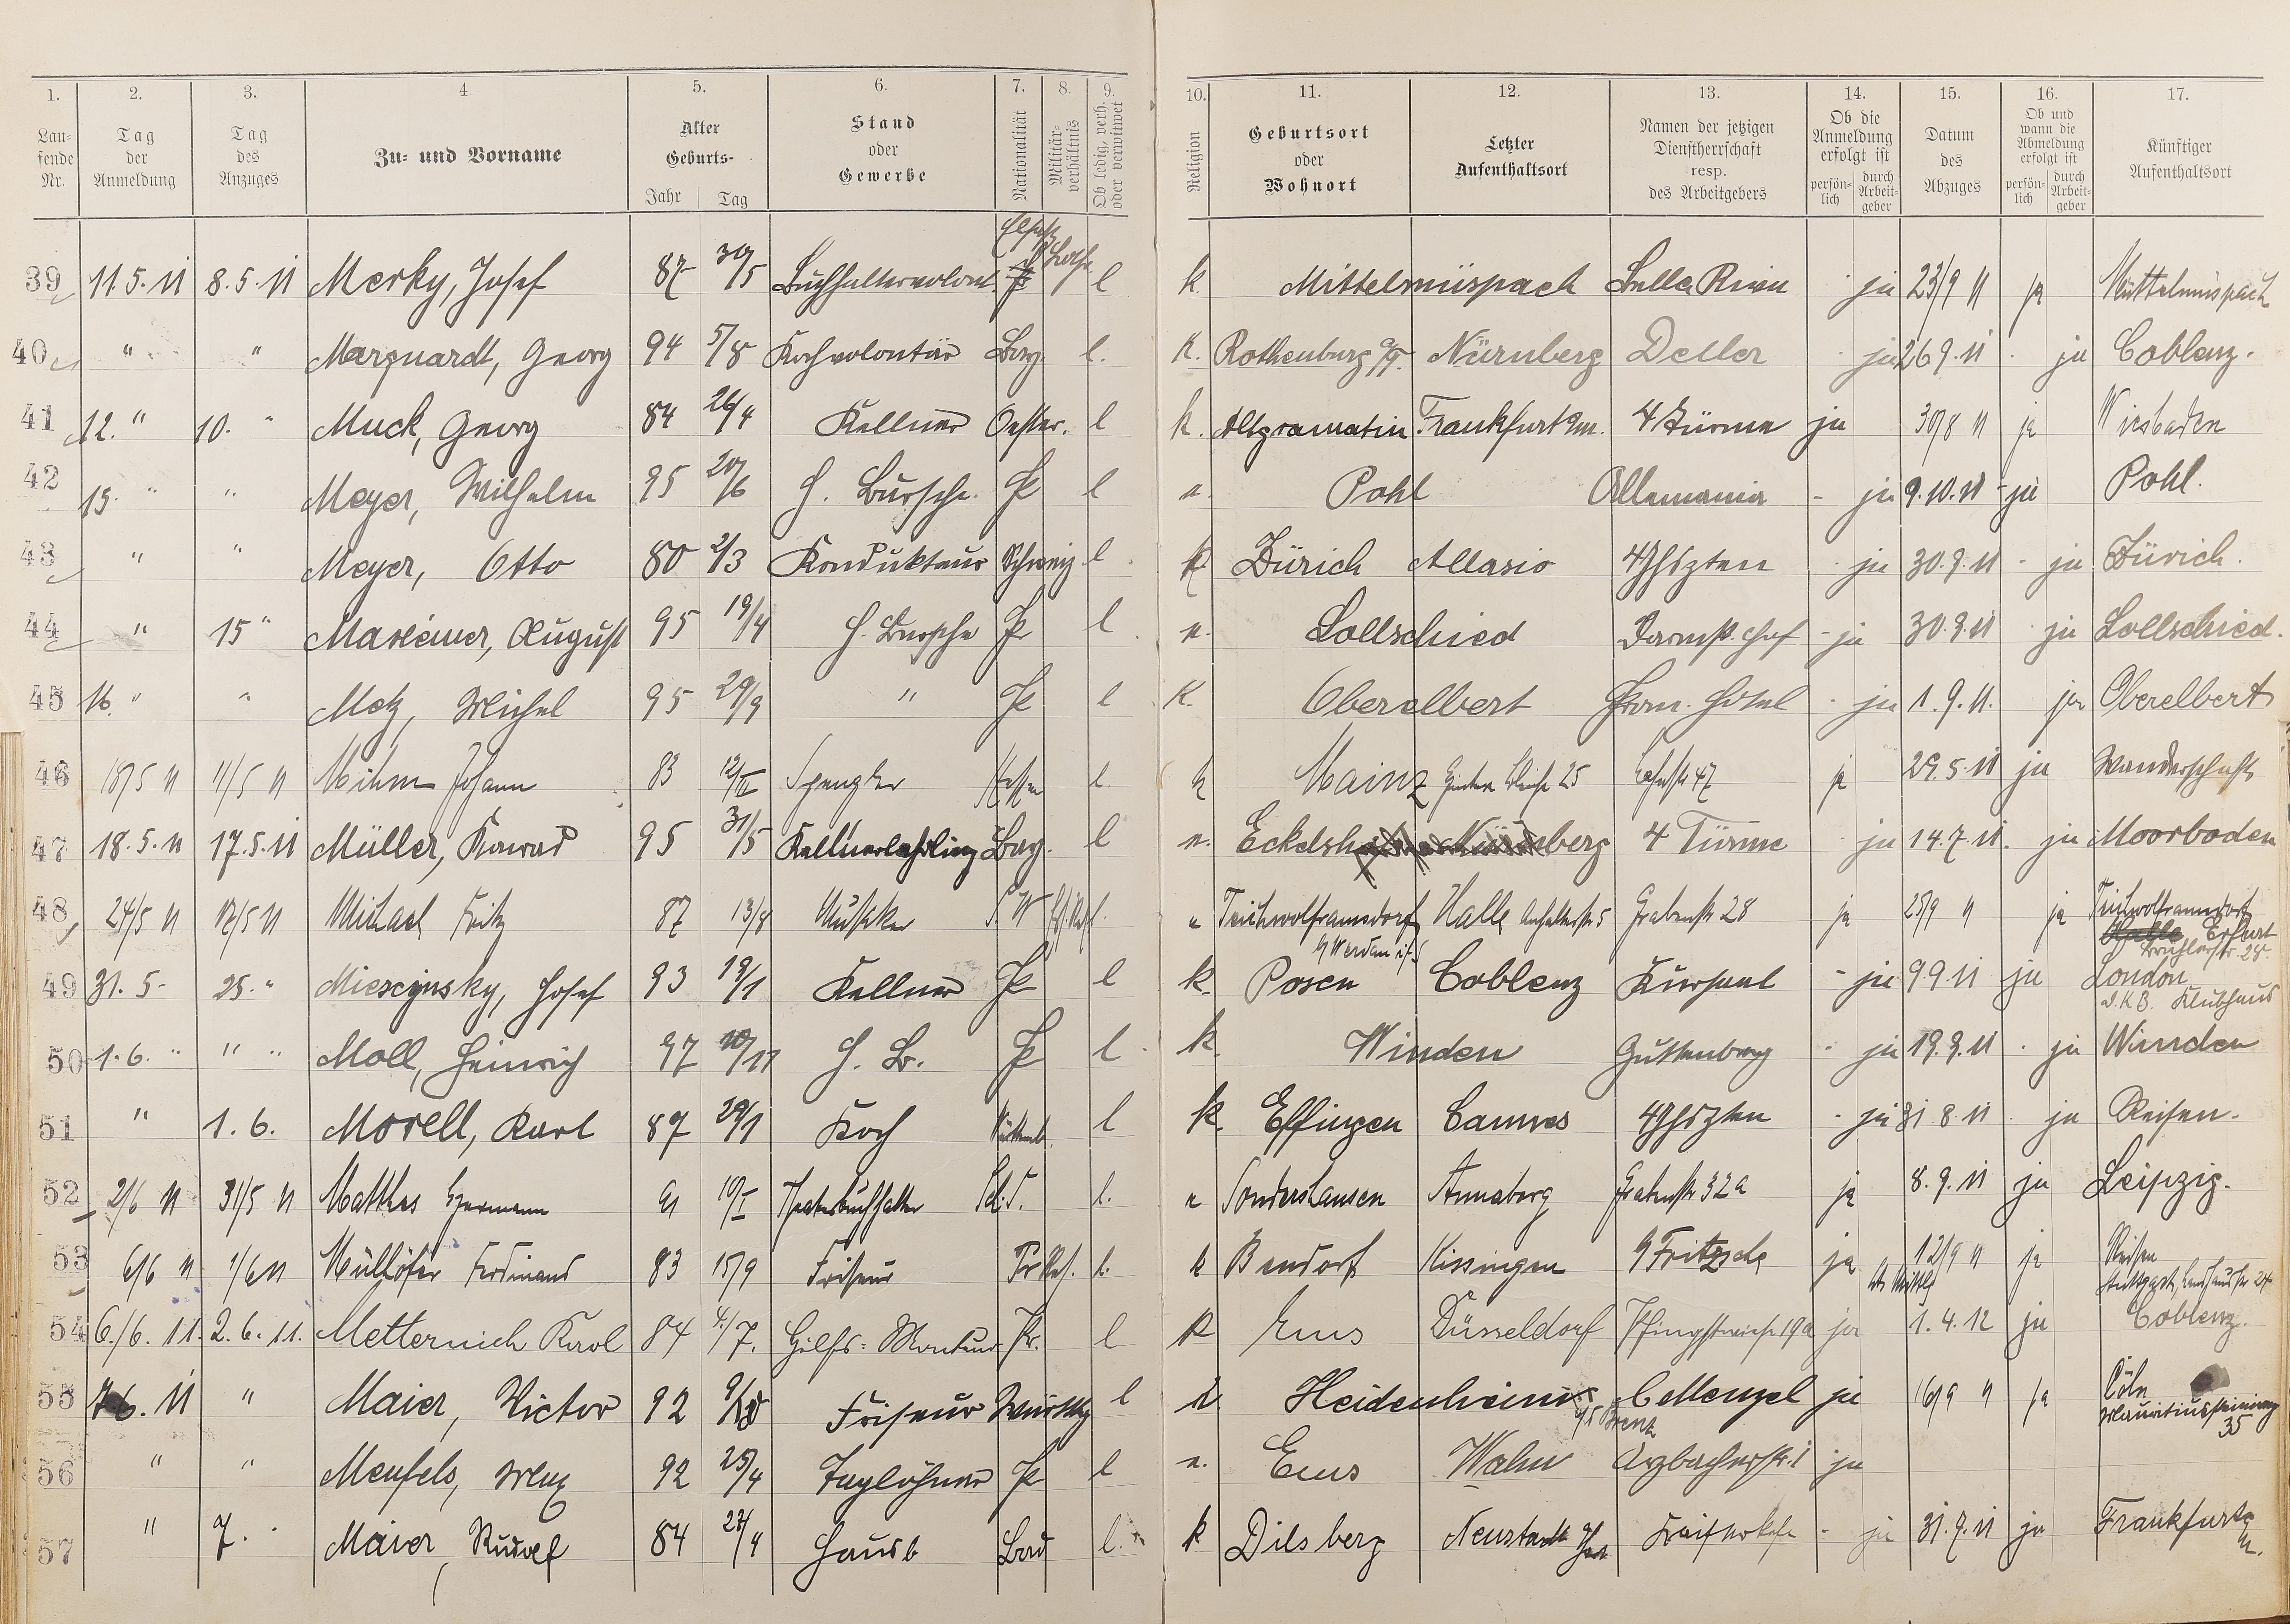 1. 2. 3. 4 5. 6. 7. 8. 9. 10. 11. 12. 13. 14. 15. 16. 17.
Laufende Nr. Tag der Anmeldung Tag des Anzuges Zu- und Vorname Alter Geburts- Jahr Tag Stand oder Gewerbe Nationalität Militär-verhältnis Ob ledig, verh. oder verwitwet Religion Geburtsort oder Wohnort Letzter Aufenthaltsort Namen der jetzigen Dienstherrschaft resp. des Arbeitgebers Ob die Anmeldung erfolgt ist persön-lich durch Arbeit-geber Datum des Abzuges Ob und wann die Abmeldung erfolgt ist persön-lich durch Arbeit-geber Künftiger Aufenthaltsort
39 11.5.11 8.5.11 Merky, Josef 87 30/5 Buchhaltervolont. Elsaß Lothr. l k Mittelmüspach Bella Riva ja 23/9 11 ja Mittelmüspach
40 " " Marquardt, Georg 94 5/8 Kochvolontär Bay. l. k. Rothenburg Nürnberg Deller ja 26 9.11 ja Coblenz.
41 12. " 10. " Muck, Georg 84 26/4 Kellner Oester. l k. Altgramatin Frankfurt a/m. 4 Türme ja 30/8 11 ja Wiesbaden
42 15. " " Meyer, Wilhelm 95 20/6 H. Bursche Pr l e. Pohl Allemania - ja 9.10.11 ja Pohl.
43 " " Meyer, Otto 80 2/3 Kondukteur Schweiz l k Zürich Allasio 4 Jhszten ja 30.9.11 ja Zürich.
44 " 15 " Marxeimer, August 95 19/4 H. Bursche Pr l e. Lollschied Darmst. Hof - ja 30.9.11 ja Lollschied.
45 16. " " Metz, Michel 95 29/9 " Pr l K. Oberelbert Prom. Hotel ja 1.9.11. ja Oberelbert
46 18/5 11 11/5 11 Mihm Johann 83 12/II Spengler Hessen l. k Mainz Hintere Bleiche 25 47 ja 29.5.11 ja Wanderschaft
47 18.5.11 17.5.11 Müller, Konrad 95 31/5 Kellnerlehrling Bay. l e. 4 Türme ja 14.7.11. ja Moorboden
48 24/5 11 17/5 11 Michael Fritz 87 13/8 Musiker S. W l. e Teichwolframsdorf Halle 5 Grabenstr 28 ja 25/9 11 ja Teichwolframsdorf
b/ Werdau i/S. Halle Erfurt
49 31.5- 25. " Miescynsky, Josef 93 19/1 Kellner Pr l k. Posen Coblenz Kursaal - ja 9 9.11 ja London
D.K.B. Klubhaus
50 1.6. " " " Moll, Heinrich 97 10/11 H. B. Pr l k. Winden Guttenberg ja 19.9.11 ja Winden
51 " 1.6. Morell, Karl 87 29/1 Koch Württemb. l k. Effingen Cannes 4 Jhszten ja 31 8.11 ja Reisen.
52 2/6 11 31/5 11 Matthes Hermann 91 10/I Theaterbuchhalter l. e Sondershausen Annaberg Grabenstr 32a ja 8.9.11 ja Leipzig.
53 6/6 11 1/6 11 Müllhöfer Ferdinand 83 15/9 Friseur Pr Res. l. k Bendorf Kissingen b Fritzsche ja 12/9 11 ja Reisen
Stuttgart
54 6./6.11. 2.6.11. Metternich Karl 84 4./7. Hilfs-Monteur Pr. l k Ems Düsseldorf Pfingstwiese 19a ja 1.4.12 ja Coblenz.
55 7.6.11 " Maier, Victor 92 Friseur Württbg l Heidenheim a/ Brenz C Menzel ja 16/9 11 ja Cöln
Mauritiussteinweg 35
56 " " Menfels, Max 92 25/4 Taglöhner Pr l e. Ems Wahn Arzbacherstr. 1 ja
57 " 7. " Maier, Rudolf 84 27/4 Hausb Bad l. k Dilsberg Neustadt - ja 31.7.11 ja Frankfurt a/m.